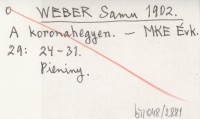 o WEBER Samu 1902.
A koronahegyen. — MKE Évk.
29: 24-31.
Pieniny.